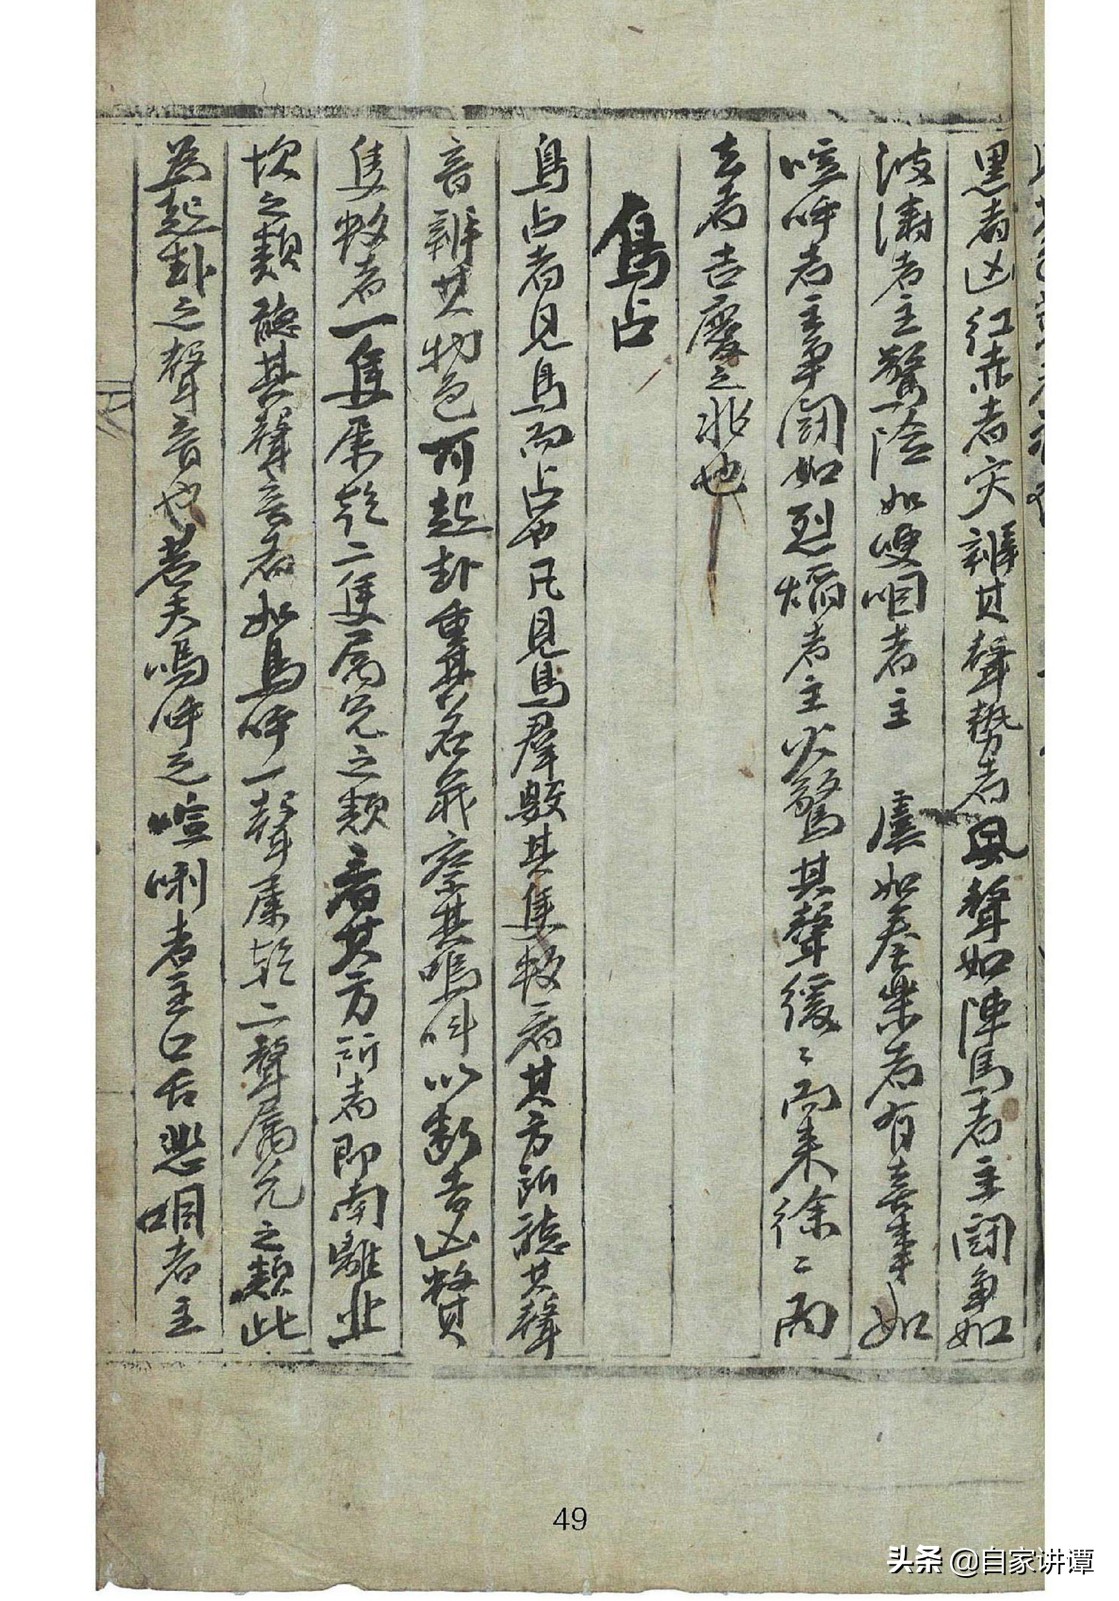 黑者凶紅赤者灾辨其聲勢者風聲如陣馬者主鬪爭如
波濤者主驚險如哽咽者主 虞如奏樂者有喜事如
喧呼者主爭鬪如烈焰者主火驚其聲緩々而来徐々而
去者吉慶之兆也
鳥占
鳥占者見鳥而占也凡見鳥羣數其隻數看其方所聽其聲
音辨其物色可起卦重其名義察其鳴叫以斷吉凶贊
隻數者一隻屬乾二隻屬兌之類看其方所者即南離北
坎之類聽其聲音者如鳥呼一聲屬乾二聲屬兌之類此
為起卦之聲音也若夫鳴呼之喧啾者主口舌悲咽者主
49
头条 @自家讲谭